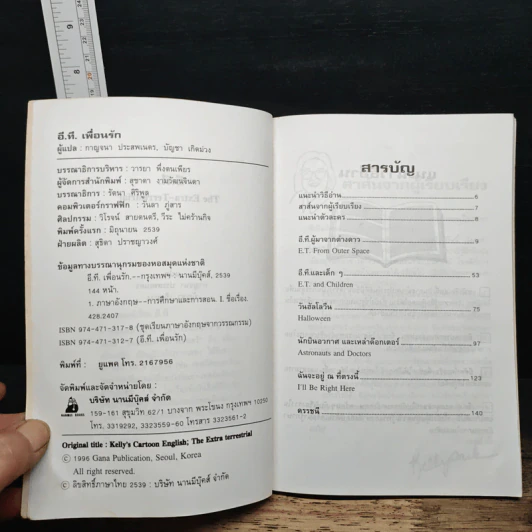 อี.ที. เพื่อนรัก
ผู้แปล : กาญจนา ประสพเนตร, บัญชา เกิดม่วง
บรรณาธิการบริหาร : วารยา พึ่งตนเพียร
ผู้จัดการสำนักพิมพ์ : สุชาดา งามวัฒนจินดา
บรรณาธิการ : รัตนา ศิริพูล
คอมพิวเตอร์กราฟฟิก : วันดา ภู่สาร
ศิลปกรรม : วิโรจน์ สายดนตรี, วีระ ไม่คร้ามกิจ
พิมพ์ครั้งแรก : มิถุนายน 2539
ฝ่ายผลิต : สุธิดา ปราชญาวงศ์
ข้อมูลทางบรรณานุกรมของหอสมุดแห่งชาติ
อี.ที. เพื่อนรัก.--กรุงเทพฯ : นานมีบุ๊คส์, 2539
144 หน้า.
1. ภาษาอังกฤษ--การศึกษาและการสอน. I. ชื่อเรื่อง.
428.2407
ISBN 974-471-317-8 (ชุดเรียนภาษาอังกฤษจากวรรณกรรม)
ISBN 974-471-312-7 (อี.ที. เพื่อนรัก)
พิมพ์ที่ : ยูแพด โทร. 2167956
จัดพิมพ์และจัดจำหน่ายโดย :
บริษัท นานมีบุ๊คส์ จำกัด
159-161 สุขุมวิท 62/1 บางจาก พระโขนง กรุงเทพฯ 10250
โทร. 3319292, 3323559-60 โทรสาร 3323561-2
Original title : Kelly's Cartoon English; The Extra terrestrial
© 1995 Gana Publication, Seoul, Korea
All right reserved.
© ลิขสิทธิ์ภาษาไทย 2539 : บริษัท นานมีบุ๊คส์ จำกัด
สารบัญ
แนะนำวิธีอ่าน 6
สาส์นจากผู้เรียบเรียง 7
แนะนำตัวละคร 8
อี.ที.ผู้มาจากต่างดาว 9
E.T. From Outer Space
อี.ที.และเด็ก ๆ 53
E.T. and Children
วันฮัลโลวีน 75
Halloween
นักบินอวกาศ และเหล่าด๊อกเตอร์ 97
Astronauts and Doctors
ฉันจะอยู่ ณ ที่ตรงนี้ 123
I'll Be Right Here
ดรรชนี 140